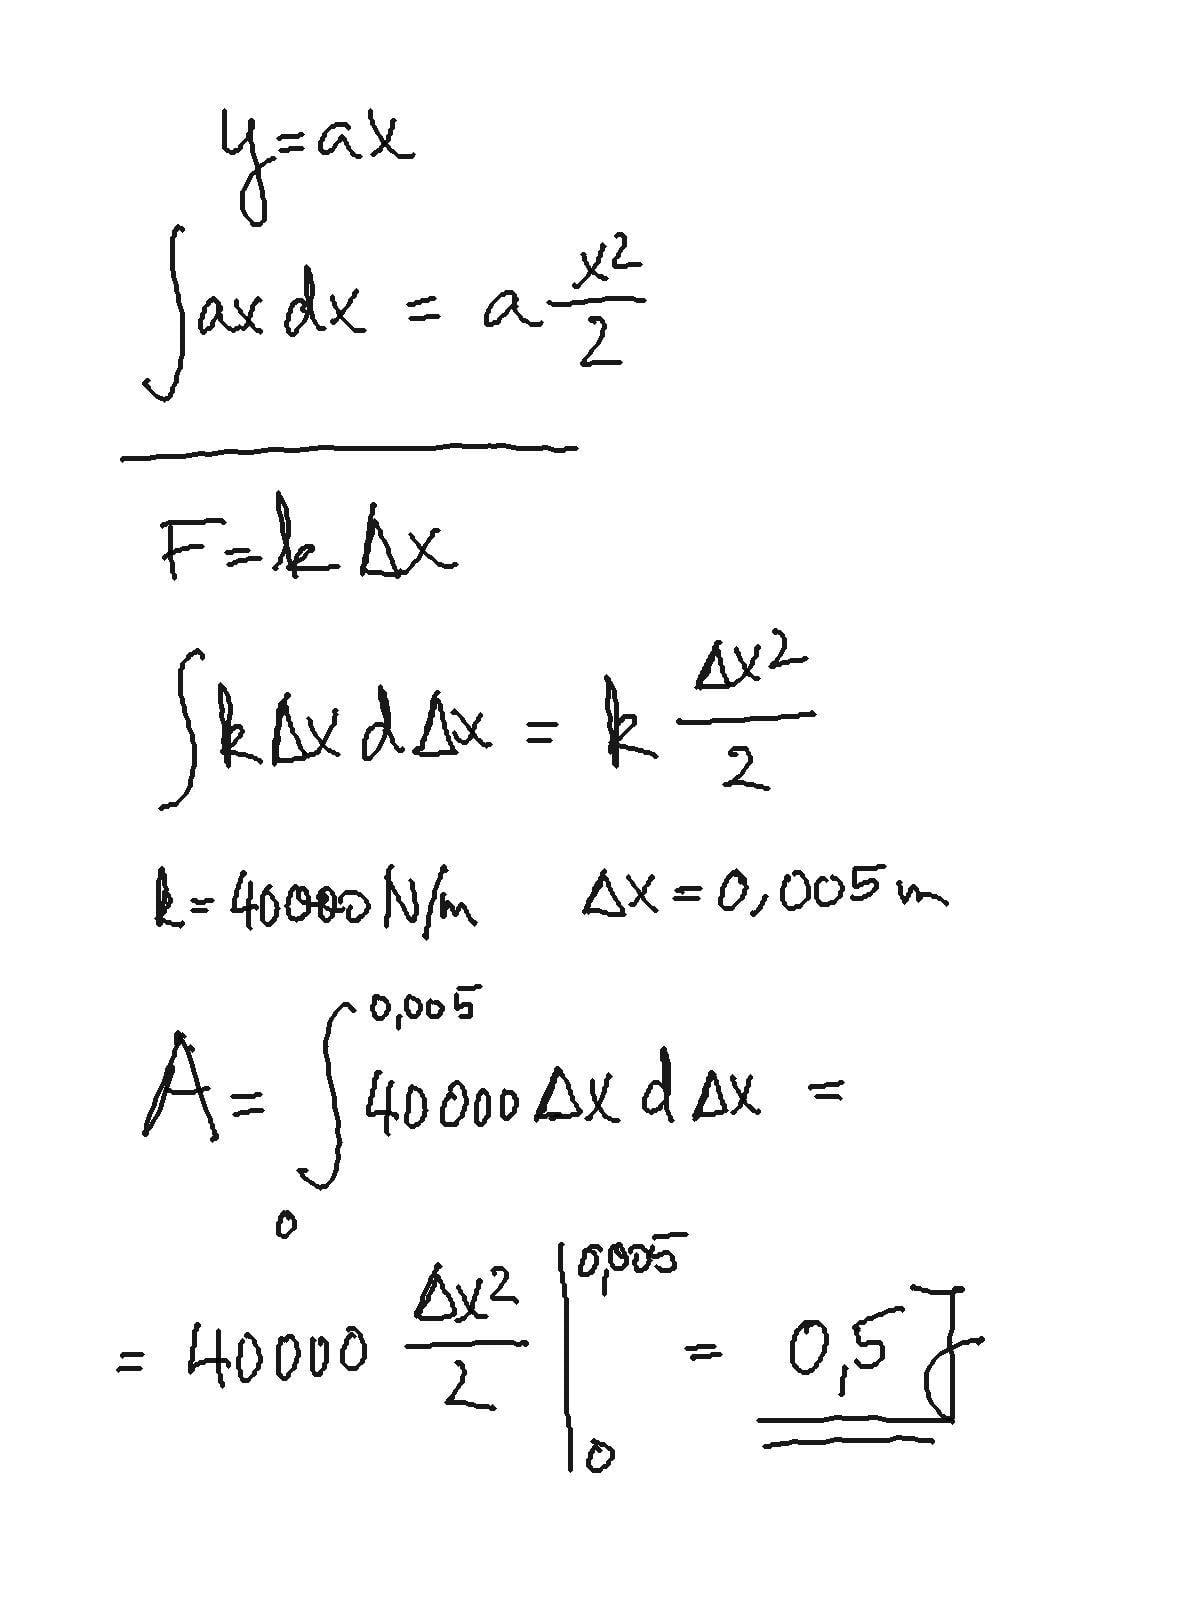 y=ax
∫ax dx = a x²/2
F=k Δx
∫kΔx dΔx = k Δx²/2
k=40000 N/m Δx=0,005m
A= ∫₀^0,005 40000 Δx dΔx =
= 40000 Δx²/2 |₀^0,005 = 0,5 J